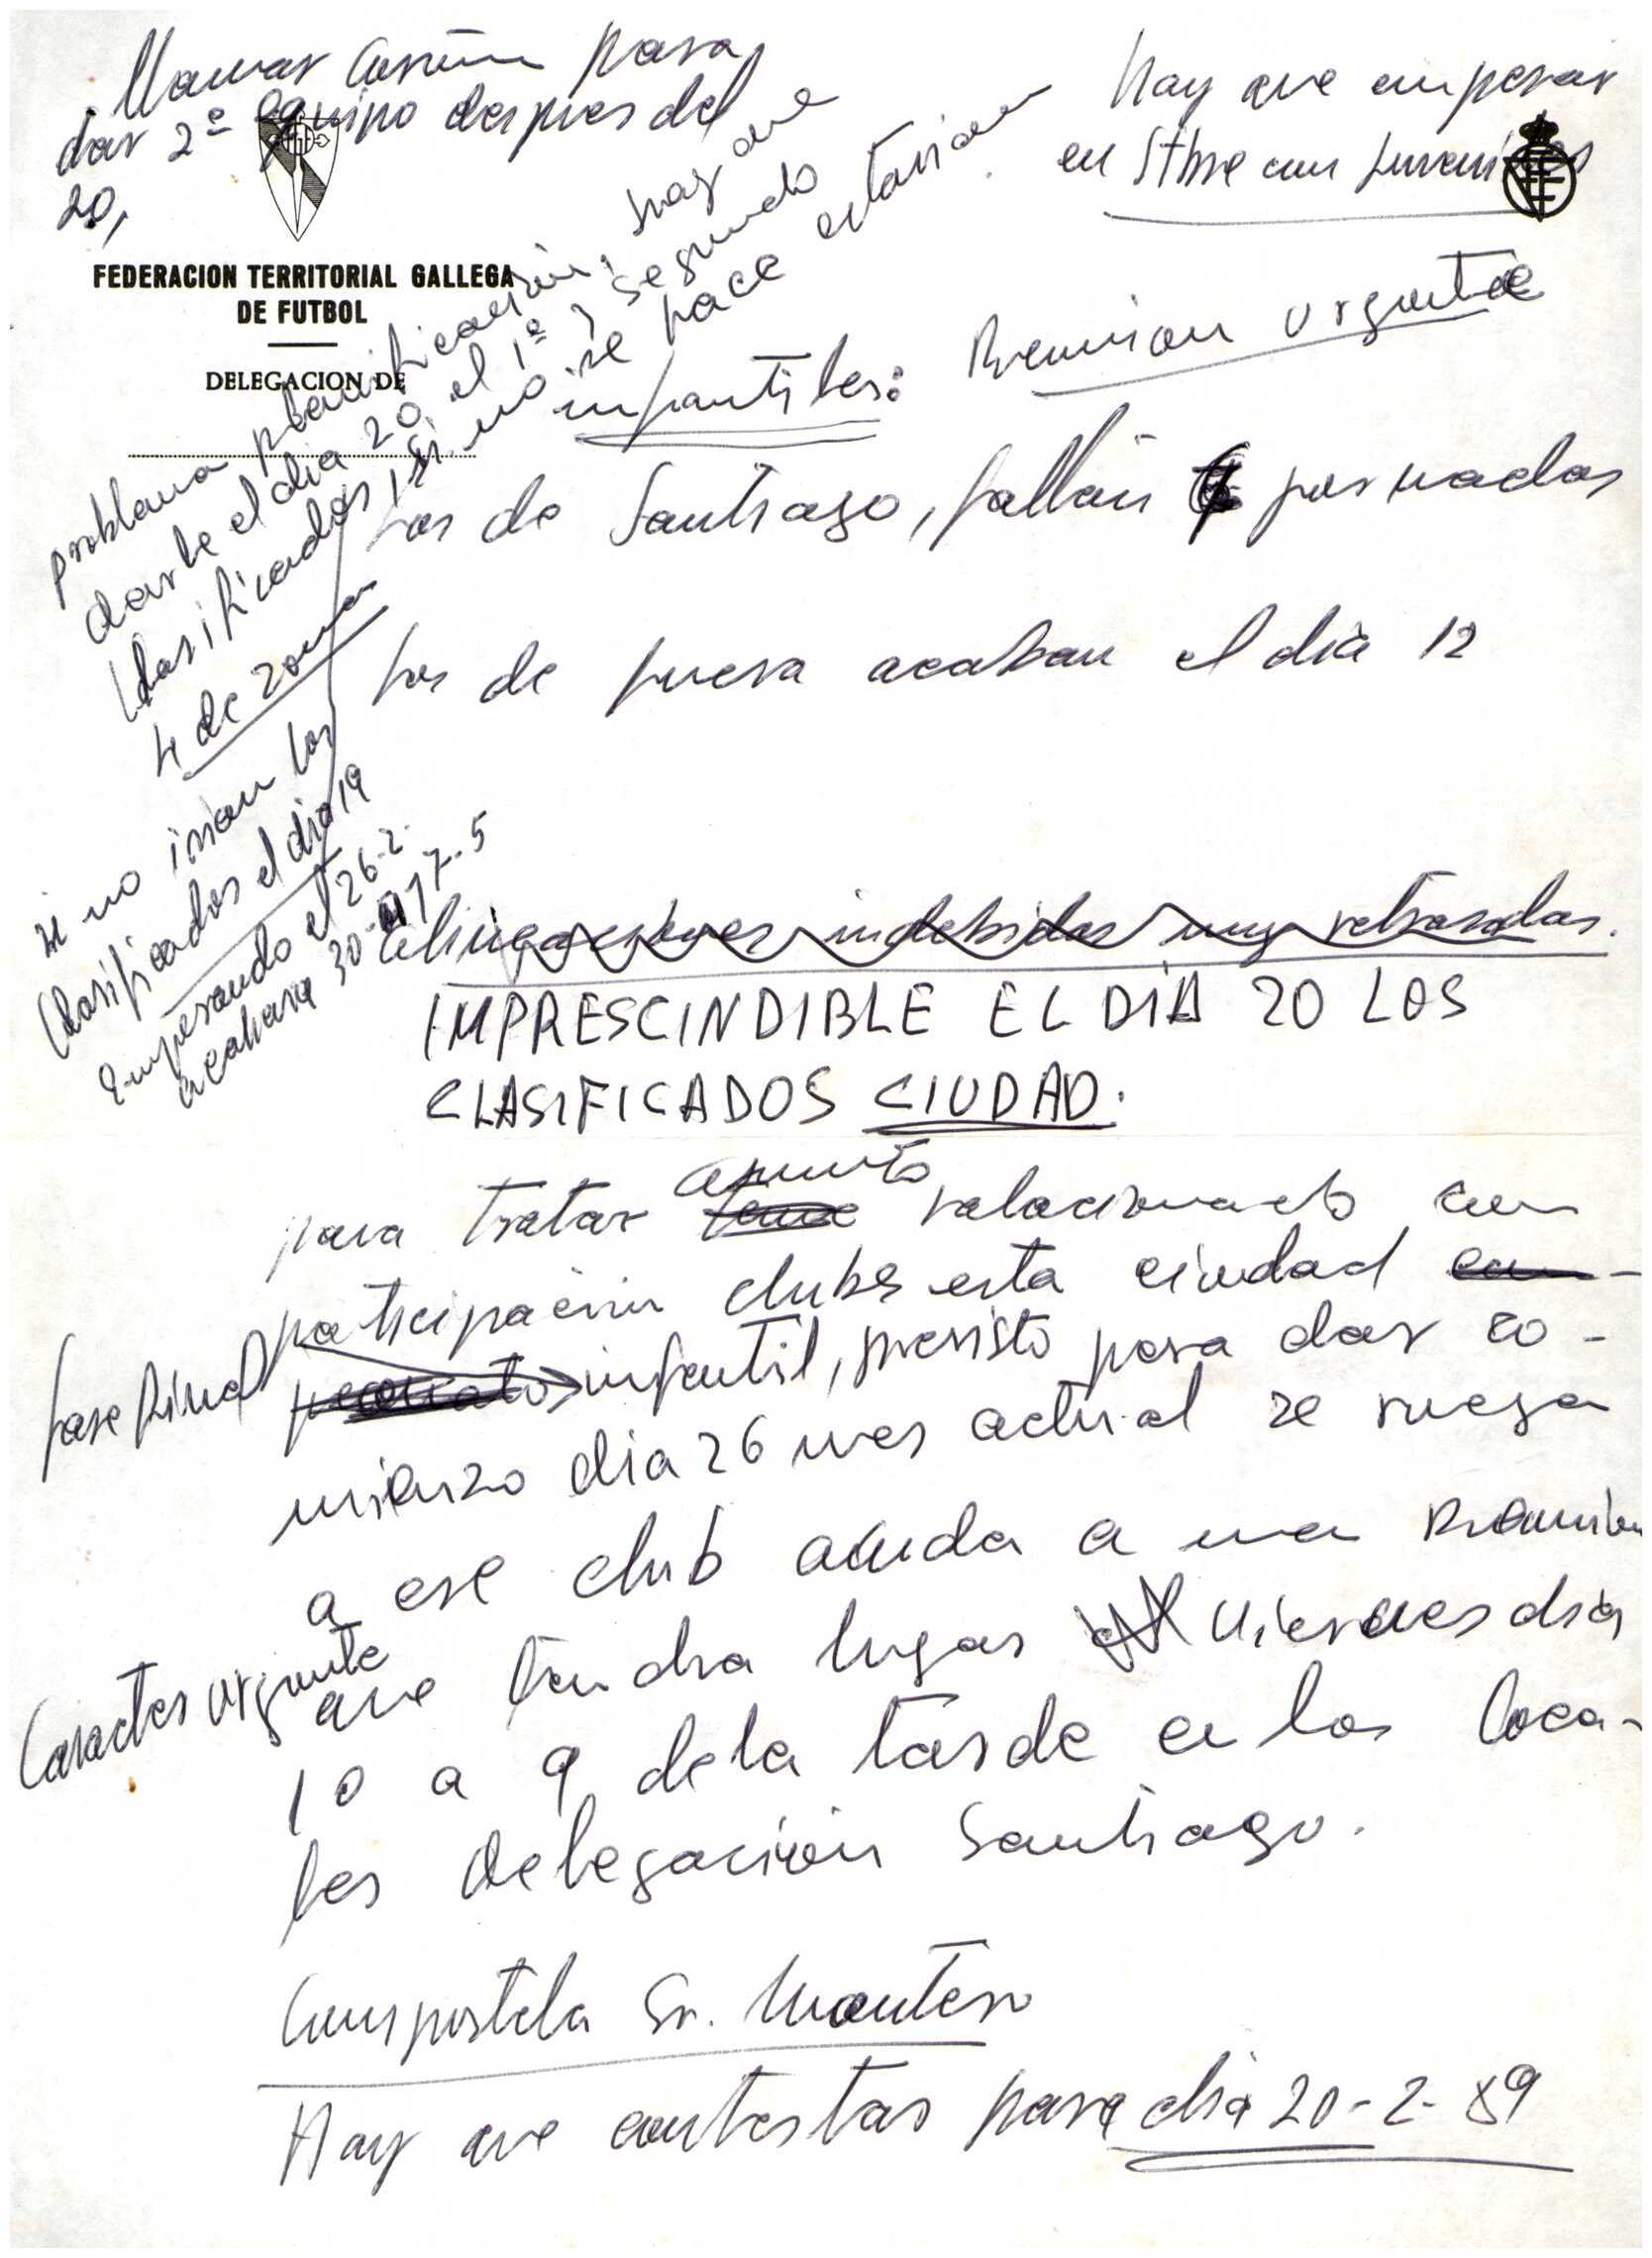 Llamar Coruña para
dar 2º equipo despues del
20,
Hay que empezar
en Stbre con juveniles
FEDERACION TERRITORIAL GALLEGA
DE FUTBOL
DELEGACION DE
problema planificación, hay que
darle el dia 20 el 1º y segundo
clasificados, si no se hace
4 de zona
infantiles: Reunion urgente
Los de Santiago, faltan jornadas
los de fuera acaban el dia 12
si no irian los
clasificados el dia 19
empezando el 26-2
acabaria 30-4 17-5
indebidas muy retrasadas.
IMPRESCINDIBLE EL DIA 20 LOS
CLASIFICADOS CIUDAD.
asunto
para tratar tema relacionado con
participación clubs esta ciudad en
fase final infantil, previsto para dar co-
mienzo dia 26 mes actual se ruega
a ese club acuda a una Reunion
Caracter urgente
que tendra lugar Viernes dia
10 a 9 de la tarde en los loca-
les delegación Santiago.
Compostela Sr. Montero
Hay que contestar para dia 20-2-89